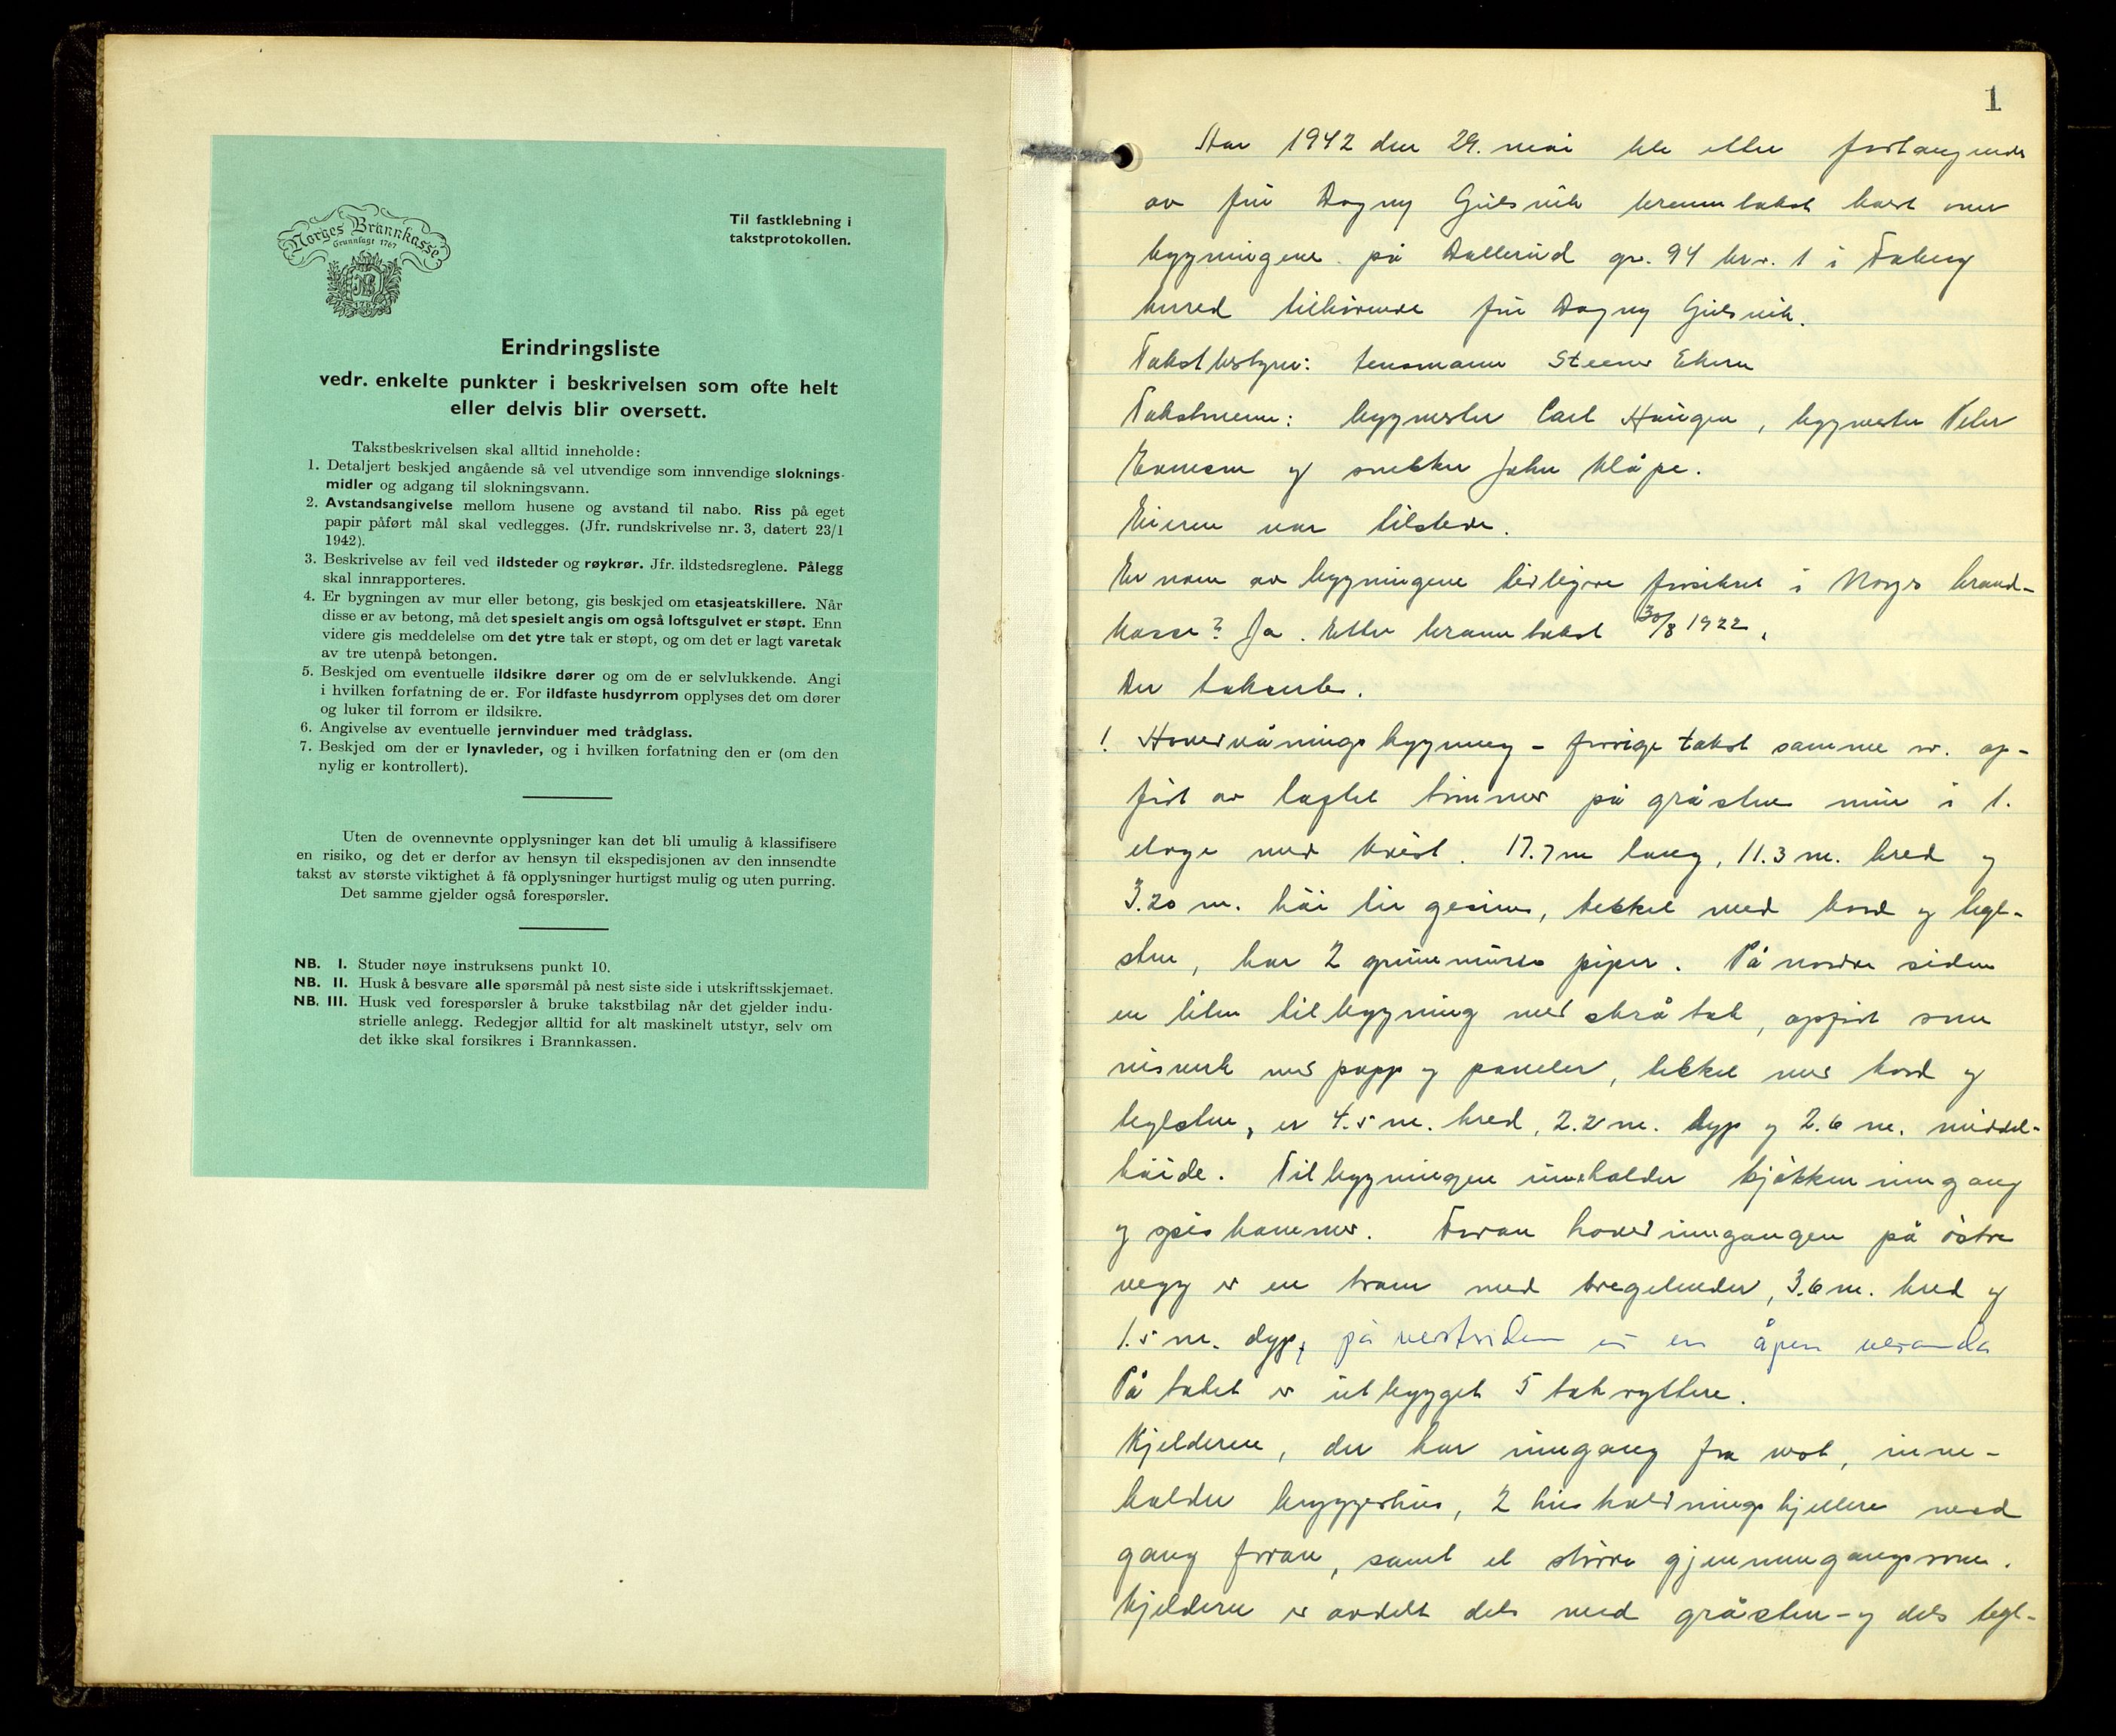 Norges Brannkasse
Grunnlagt 1767
1767
Til fastklebning i
takstprotokollen.
Erindringsliste
vedr. enkelte punkter i beskrivelsen som ofte helt
eller delvis blir oversett.
Takstbeskrivelsen skal alltid inneholde:
1. Detaljert beskjed angående så vel utvendige som innvendige sloknings-
midler og adgang til slokningsvann.
2. Avstandsangivelse mellom husene og avstand til nabo. Riss på eget
papir påført mål skal vedlegges. (Jfr. rundskrivelse nr. 3, datert 23/1
1942).
3. Beskrivelse av feil ved ildsteder og røykrør. Jfr. ildstedsreglene. Pålegg
skal innrapporteres.
4. Er bygningen av mur eller betong, gis beskjed om etasjeatskillere. Når
disse er av betong, må det spesielt angis om også loftsgulvet er støpt. Enn
videre gis meddelelse om det ytre tak er støpt, og om det er lagt varetak
av tre utenpå betongen.
5. Beskjed om eventuelle ildsikre dører og om de er selvlukkende. Angi
i hvilken forfatning de er. For ildfaste husdyrrom opplyses det om dører
og luker til forrom er ildsikre.
6. Angivelse av eventuelle jernvinduer med trådglass.
7. Beskjed om der er lynavleder, og i hvilken forfatning den er (om den
nylig er kontrollert).
Uten de ovennevnte opplysninger kan det bli umulig å klassifisere
en risiko, og det er derfor av hensyn til ekspedisjonen av den innsendte
takst av største viktighet å få opplysninger hurtigst mulig og uten purring.
Det samme gjelder også forespørsler.
NB. I. Studer nøye instruksens punkt 10.
NB. II. Husk å besvare alle spørsmål på nest siste side i utskriftsskjemaet.
NB. III. Husk ved forespørsler å bruke takstbilag når det gjelder indu-
strielle anlegg. Redegjør alltid for alt maskinelt utstyr, selv om
det ikke skal forsikres i Brannkassen.
1
Aar 1942 den 29. mai ble etter forlangende
av fru Dagny branntakst holdt over
bygningene på Dallerud gr. 94 br.nr. 1 i Faberg
herred tilhørende fru Dagny
Takstbestyrer: lensmann Steener Ekern
Takstmenn: byggmester Carl Haugen, byggmester Peter
Evensen og snekker John Klåpe.
Eieren var tilstede.
Er noen av bygningene tidligere forsikret i Norges brand-
kasse? Ja. Etter branntakst 30/8 1922.
Der taksertes.
1. Hovedvåningsbygning - forrige takst samme nr. op-
ført av laftet tømmer på gråstens mur i 1.
etage med kvist. 17.7 m lang, 11.3 m. bred og
3.20 m. höi til gesims, tekket med bord og tegl-
sten, har 2 grunnmurte piper. På nordre siden
en liten tilbygning med skråtak, oppført som
reisverk med papp og paneler, tekket med bord og
teglsten, er 4.5 m. bred, 2.2 m. dyp og 2.6 m. middel-
höide. Tilbygningen inneholder kjøkkeninngang
og spiskammer. Foran hovedinngangen på östre
vegg er en tram med tregelender, 3.6 m. bred og
1.5 m. dyp, på vestsiden er en åpen veranda
På taket er utbygget 5 takryttere.
Kjelderen, der har inngang fra vest, inne-
holder bryggerhus, 2 husholdningskjellere med
gang foran, samt et större gjennemgangsrom.
Kjelderen er avdelt dels med gråsten- og dels tegl-